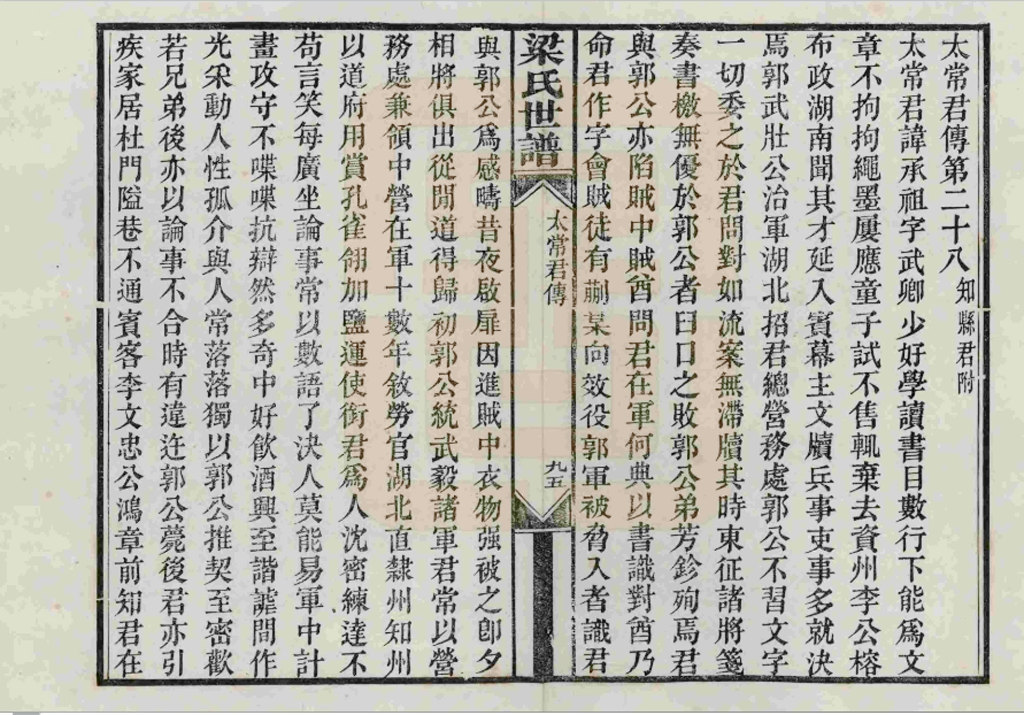 太常君傳第二十八 知縣君附
太常君諱承祖字武卿少好學讀書目數行下能爲文
章不拘拘繩墨屢應童子試不售輒棄去資州李公榕
布政湖南聞其才延入賓幕主文牘兵事吏事多就決
焉郭武壯公治軍湖北招君總營務處郭公不習文字
一切委之於君問對如流案無滯牘其時東征諸將箋
奏書檄無優於郭公者臼口之敗郭公弟芳鉁殉焉君
與郭公亦陷賊中賊酋問君在軍何典以書識對酋乃
命君作字會賊徒有蒯某向效役郭軍被脅入者識君
梁氏世譜
太常君傳
九五
與郭公爲感疇昔夜啟扉因進賊中衣物强被之卽夕
相將俱出從閒道得歸初郭公統武毅諸軍君常以營
務處兼領中營在軍十數年敘勞官湖北直隸州知州
以道府用賞孔雀翎加鹽運使銜君爲人沈密練達不
苟言笑每廣坐論事常以數語了決人莫能易軍中計
畫攻守不喋喋抗辯然多奇中好飲酒興至諧謔間作
光采動人性孤介與人常落落獨以郭公推契至密歡
若兄弟後亦以論事不合時有違迕郭公薨後君亦引
疾家居杜門隘巷不通賓客李文忠公鴻章前知君在